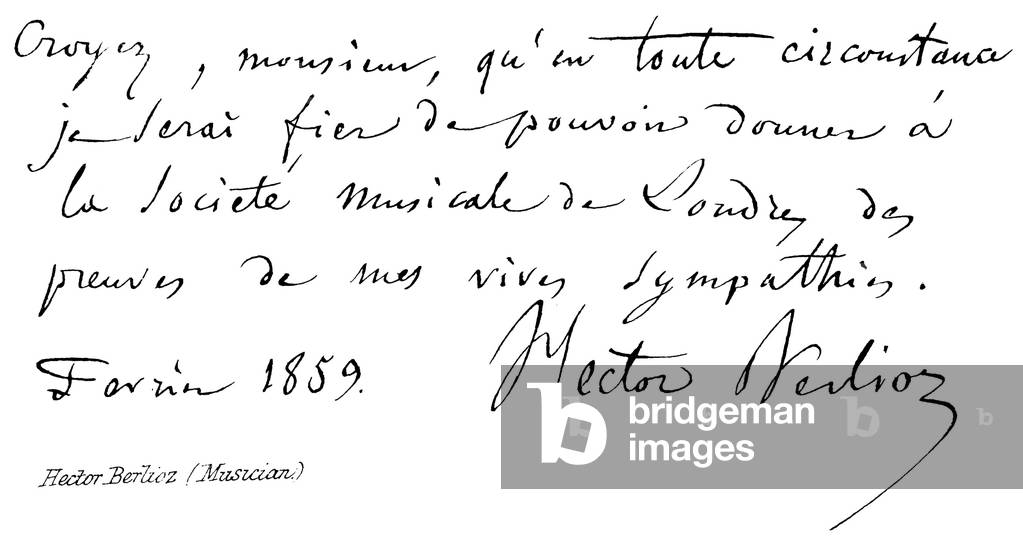 Croyez, monsieur, qu'en toute circonstance
je serai fier de pouvoir donner à
la Société musicale de Londres des
preuves de mes vives sympathies.
Hector Berlioz
Fevrier 1859.
Hector Berlioz (Musician)
bridgeman
images
b
b
b